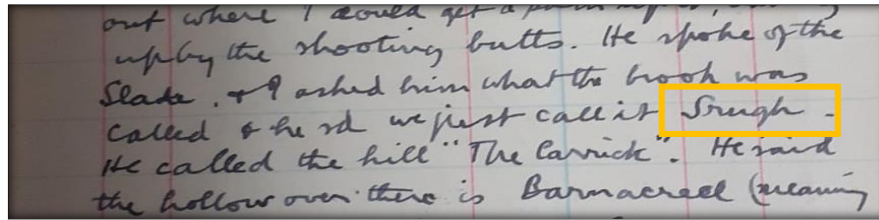 out where I could get a
up by the shooting butts. He spoke of the
Slade. & I asked him what the brook was
called & he sd we just call it Srugh -
He called the hill "The Carrick". He said
the hollow over there is Barnacreel (meaning